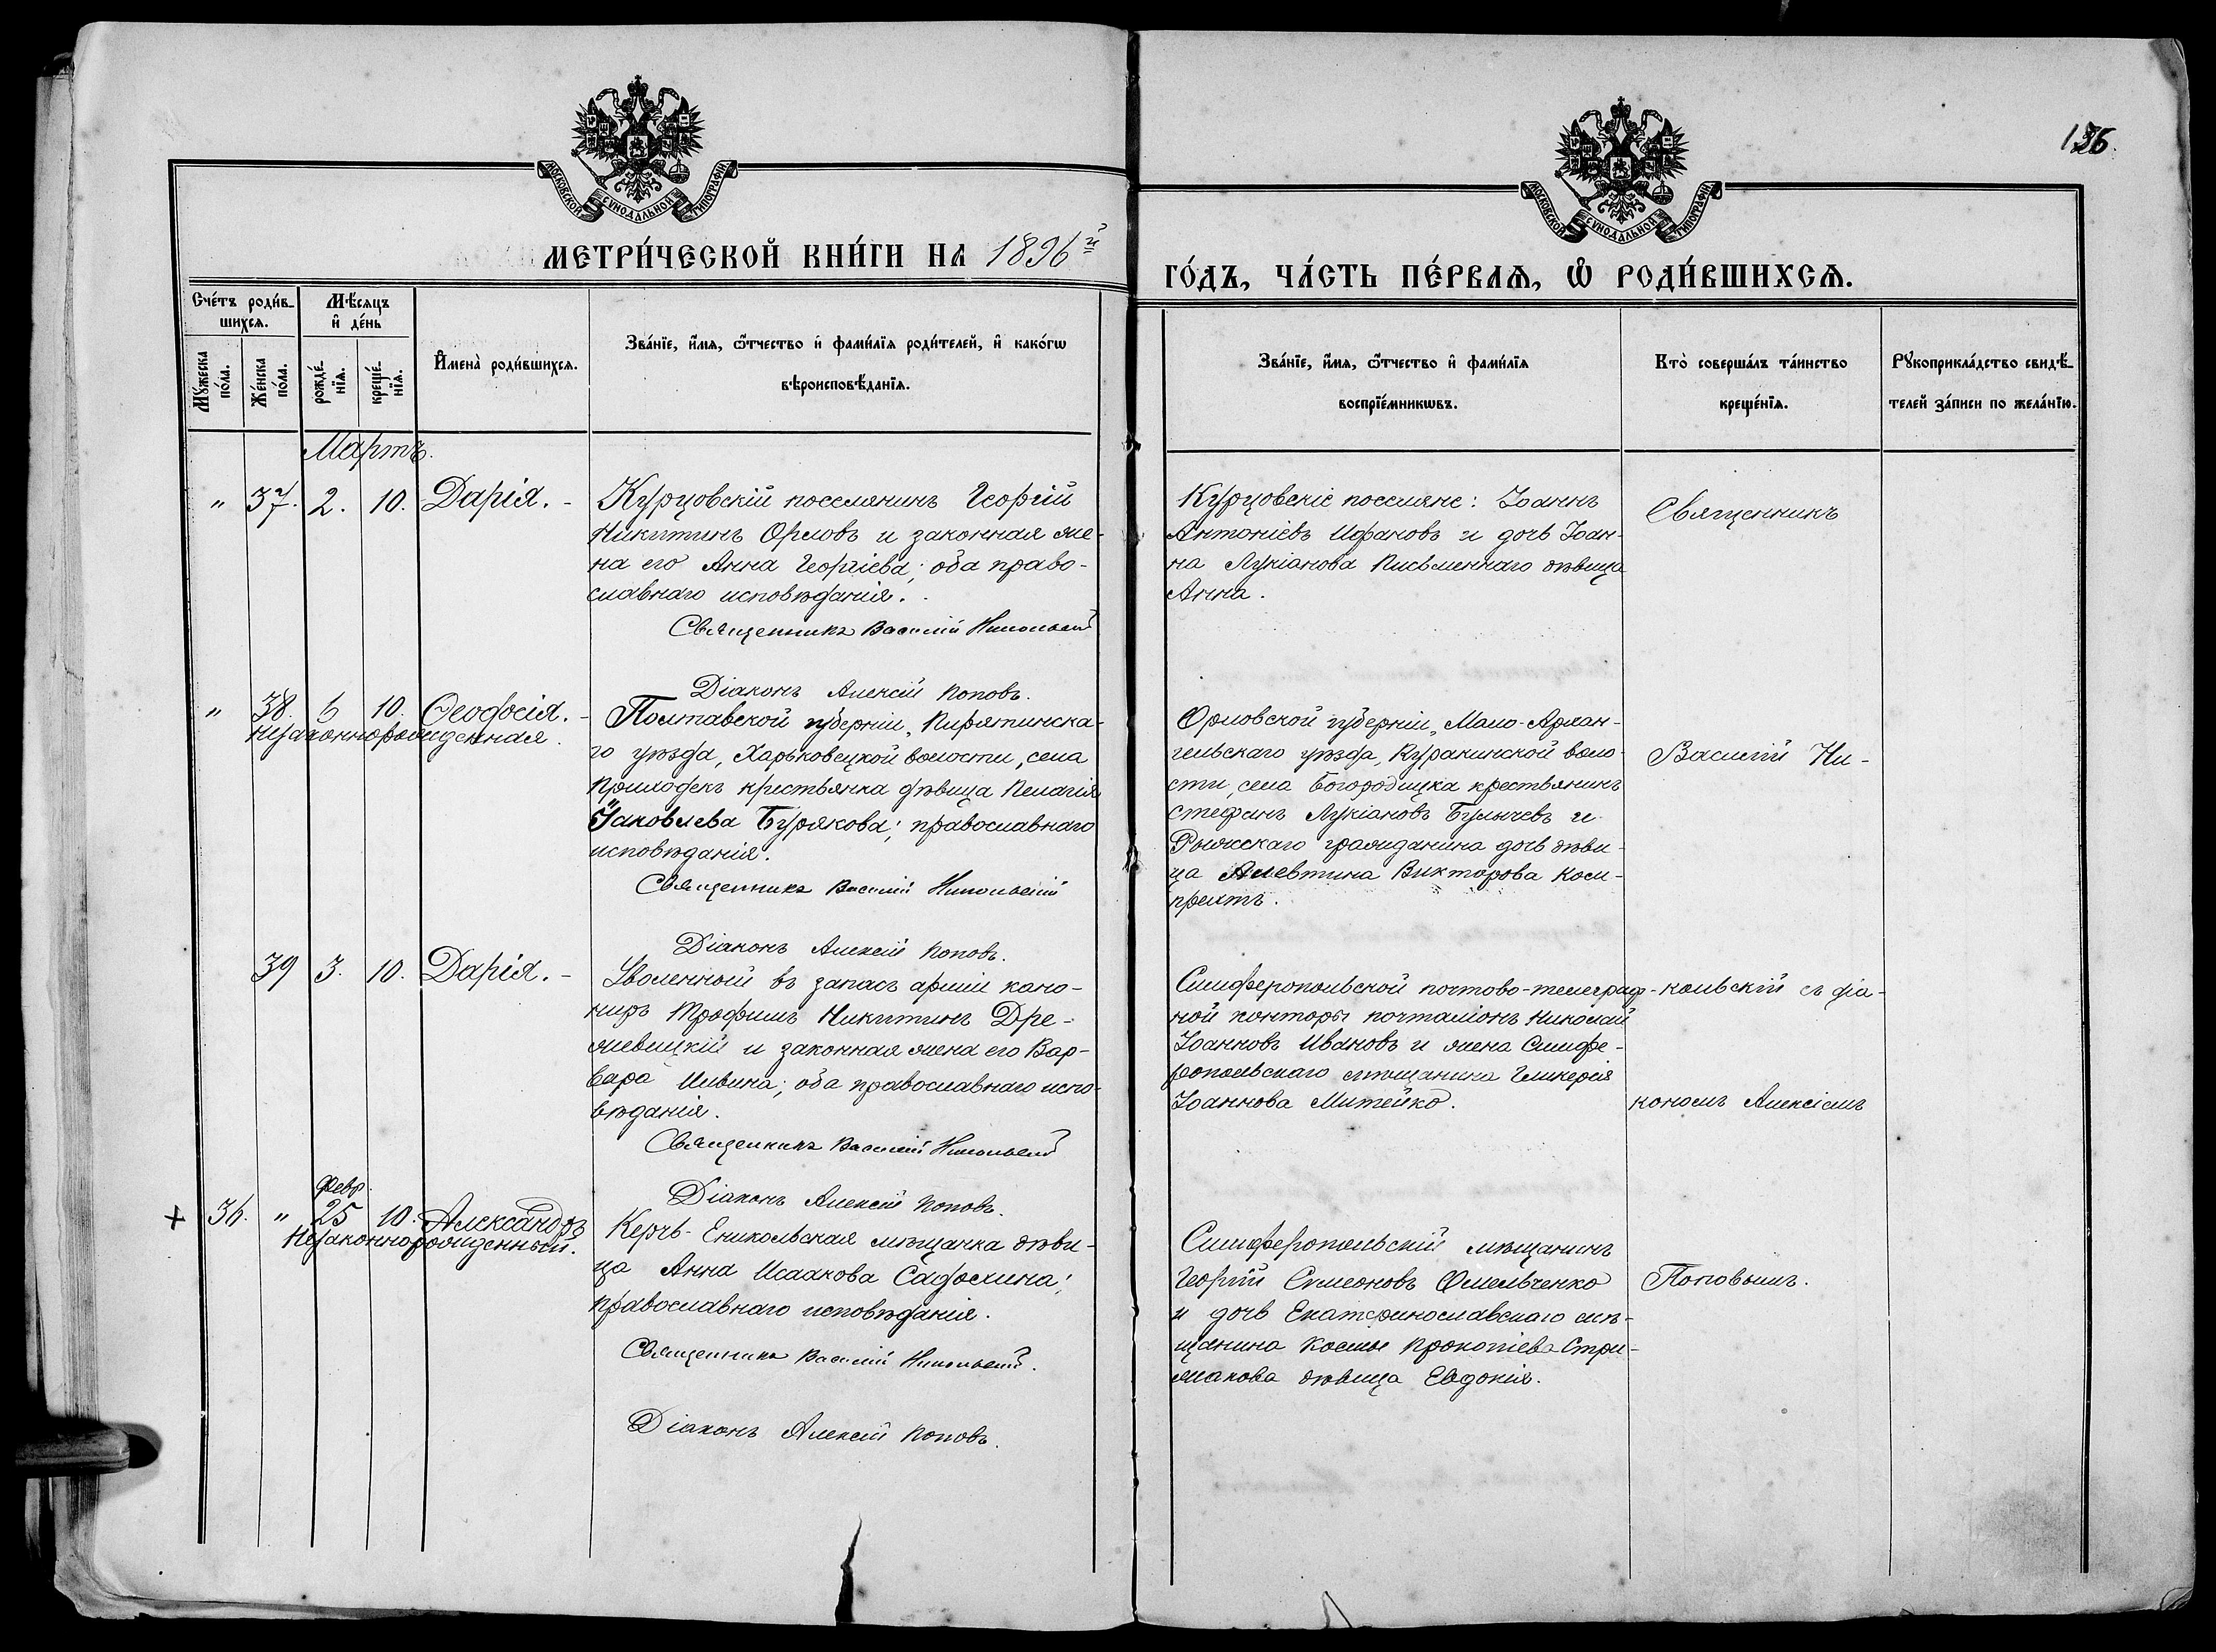 136.
МОСКОВСКОЙ СѴНОДАЛЬНОЙ ТИПОГРАФІИ
МОСКОВСКОЙ СѴНОДАЛЬНОЙ ТИПОГРАФІИ
МЕТРИ́ЧЕСКОЙ КНИ́ГИ НА 1896й
ГО́ДЪ, ЧА́СТЬ ПЕ́РВАѦ, Ѡ РОДИ́ВШИХСѦ.
Сче́тъ роди́в-
шихсѧ.
Мѣ́сяцъ
и҆ де́нь
Мꙋ́жеска
по́ла.
Же́нска
по́ла.
рожде́-
нїѧ.
креще́-
нїѧ.
И҆мена̀ роди́вшихсѧ.
Зва́нїе, и҆́мѧ, ѻ҆́тчество и҆ фами́лїѧ роди́телей, и҆ како́гѡ
вѣроисповѣ́данїѧ.
Зва́нїе, и҆́мѧ, ѻ҆́тчество и҆ фами́лїѧ
воспрїе́мникѡвъ.
Кто̀ соверша́лъ та́инство
креще́нїѧ.
Рꙋкоприкла́дство свидѣ́-
телей за́писи по жела́нїю.
Мартъ.
" 37. 2. 10. Дарія. -
Курцовскій поселянинъ Георгій
Никитинъ Орловъ и законная же-
на его Анна Георгіева; оба право-
славнаго исповѣданія.
Священникъ Василій Никольскій
Діаконъ Алексій Поповъ.
Курцовскіе поселяне: Іоаннъ
Антоніевъ и дочь Іоан-
на Лукіанова Письменнаго дѣвица
Анна.
Священникъ
" 38. 6 10. Ѳеодосія. -
Незаконнорожденная.
Полтавской губерніи, Пирятинска-
го уѣзда, Харьковецкой волости, села
Приходекъ крестьянка дѣвица Пелагія
Іаковлева Бурякова; православнаго
исповѣданія.
Священникъ Василій Никольскій
Діаконъ Алексій Поповъ.
Орловской губерніи, Мало-Архан-
гельскаго уѣзда, Куракинской воло-
сти, села Богородицка крестьянинъ
Стефанъ Лукіановъ Булычевъ и
Рижскаго гражданина дочь дѣви-
ца Алевтина Викторова Ком-
прехтъ.
Василій Ни-
39 3. 10. Дарія. -
Уволенный въ запасъ арміи кано-
ниръ Трофимъ Никитинъ Дре-
жевицкій и законная жена его Вар-
вара Ильина; оба православнаго испо-
вѣданія.
Священникъ Василій Никольскій
Діаконъ Алексій Поповъ.
Симферопольской почтово-телеграф-
ной конторы почталіонъ Николай
Іоанновъ Ивановъ и жена Симфе-
ропольскаго мѣщанина Гликерія
Іоаннова Митейко.
кольскій съ діа-
кономъ Алексіемъ
Февр.
+ 36. " 25 10. Александръ
Незаконнорожденный.
Керчь-Еникольская мѣщанка дѣви-
ца Анна Исаакова Сафохина;
православнаго исповѣданія.
Священникъ Василій Никольскій.
Діаконъ Алексій Поповъ.
Симферопольскій мѣщанинъ
Георгій Симеоновъ Омельченко
и дочь Екатеринославскаго мѣ-
щанина Космы Прокопіева Стри-
жакова дѣвица Евдокія.
Поповымъ.